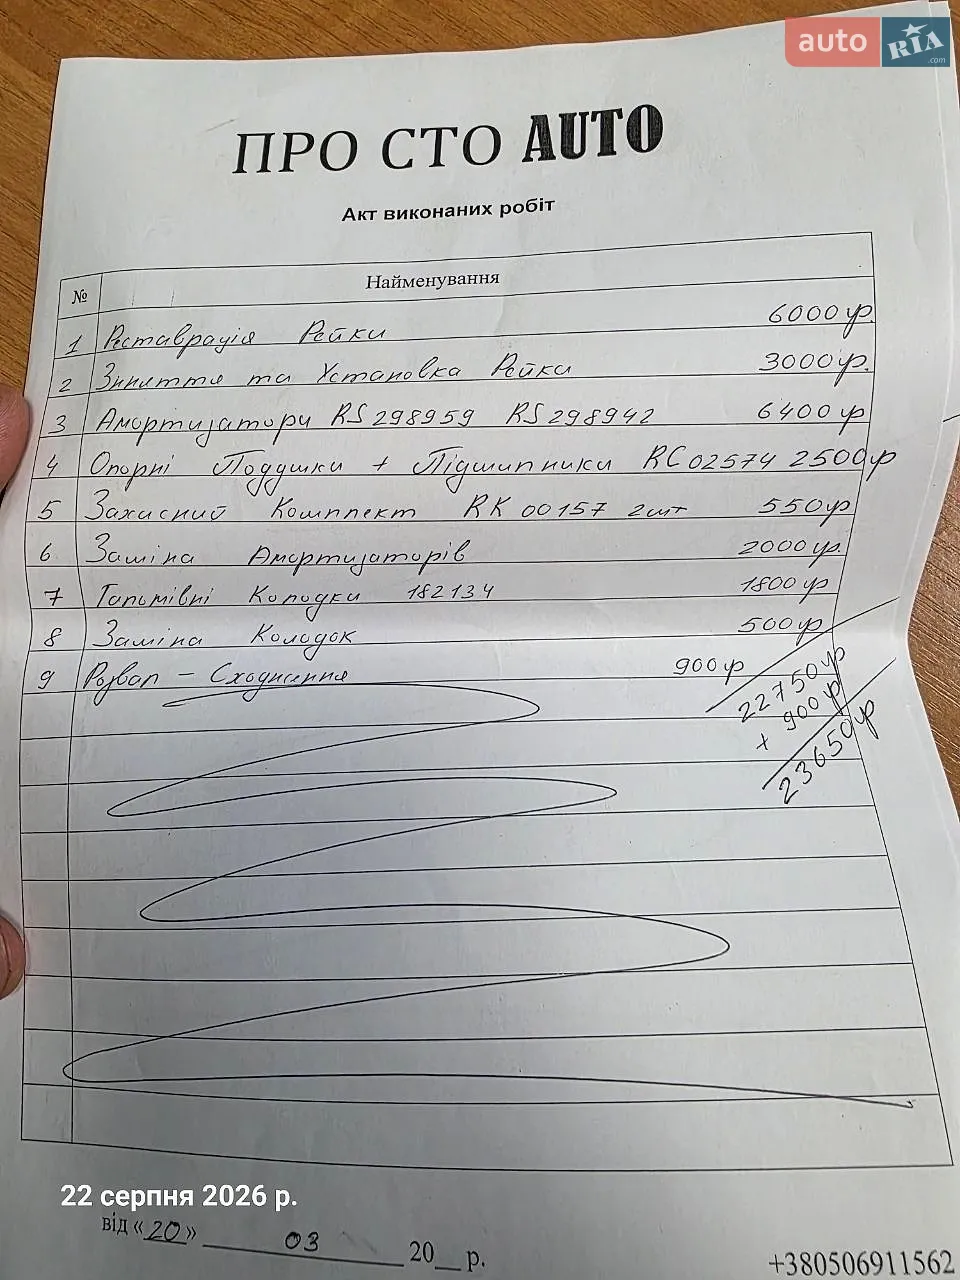 auto RIA .com
ПРО СТО AUTO
Акт виконаних робіт
№ Найменування
1 Реставрація Рейки 6000гр.
2 Зняття та Установка Рейки 3000гр.
3 Амортизатори RS298959 RS298942 6400гр
4 Опорні Подушки + Підшипники RC02574 2500гр
5 Захисний Комплект RK00157 2шт 550гр
6 Заміна Амортизаторів 2000гр.
7 Гальмівні Колодки 182134 1800гр
8 Заміна Колодок 500гр
9 Розвал - Сходження 900гр
22750гр
+ 900гр
23650гр
22 серпня 2026 р.
від «20» 03 20__ р.
+380506911562